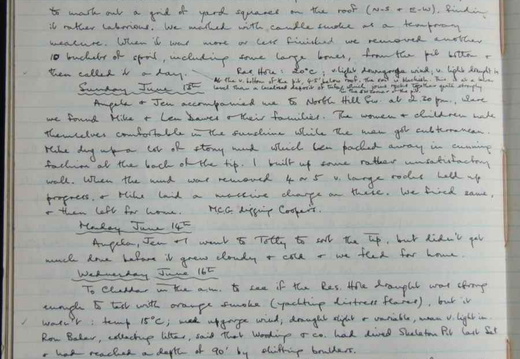 to mark out a grid of yard squares on the roof (N-S & E-W), finding
it rather laborious. We marked with candle smoke as a temporary
measure. When it was more or less finished we removed another
10 buckets of spoil, including some large bones, from the pit bottom &
then called it a day. Res. Hole: 20°c; v. light downgorge wind, v. light draught in
At the v. bottom of the pit, 9.5' below roof, the rock is blackish. This is at a lower
Sunday June 13th level than a localised deposit of
Angela & Jen accompanied me to North Hill Sw at 2.20 pm, where
we found Mike & Len Dawes & their families. The women & children made
themselves comfortable in the sunshine while the men got subterranean.
Mike dug up a lot of stony mud which Len packed away in cunning
fashion at the back of the tip. I built up some rather unsatisfactory
wall. When the mud was removed 4 or 5 v. large rocks held up
progress, & Mike laid a massive charge on these. We fired same,
& then left for home. McG. digging Coopers.
Monday June 14th
Angela, Jen & I went to Totty to sort the tip, but didn't get
much done before it grew cloudy & cold & we fled for home.
Wednesday June 16th
To Cheddar in the a.m. to see if the Res. Hole draught was strong
enough to test with orange smoke (yachting distress flares), but it
wasn't: temp 15°c; med upgorge wind, draught slight & variable, max v. light in
Ron Baker, collecting litter, said that Wooding & co. had dived Skeleton Pit last Sat
& had reached a depth of 90' by shifting boulders.